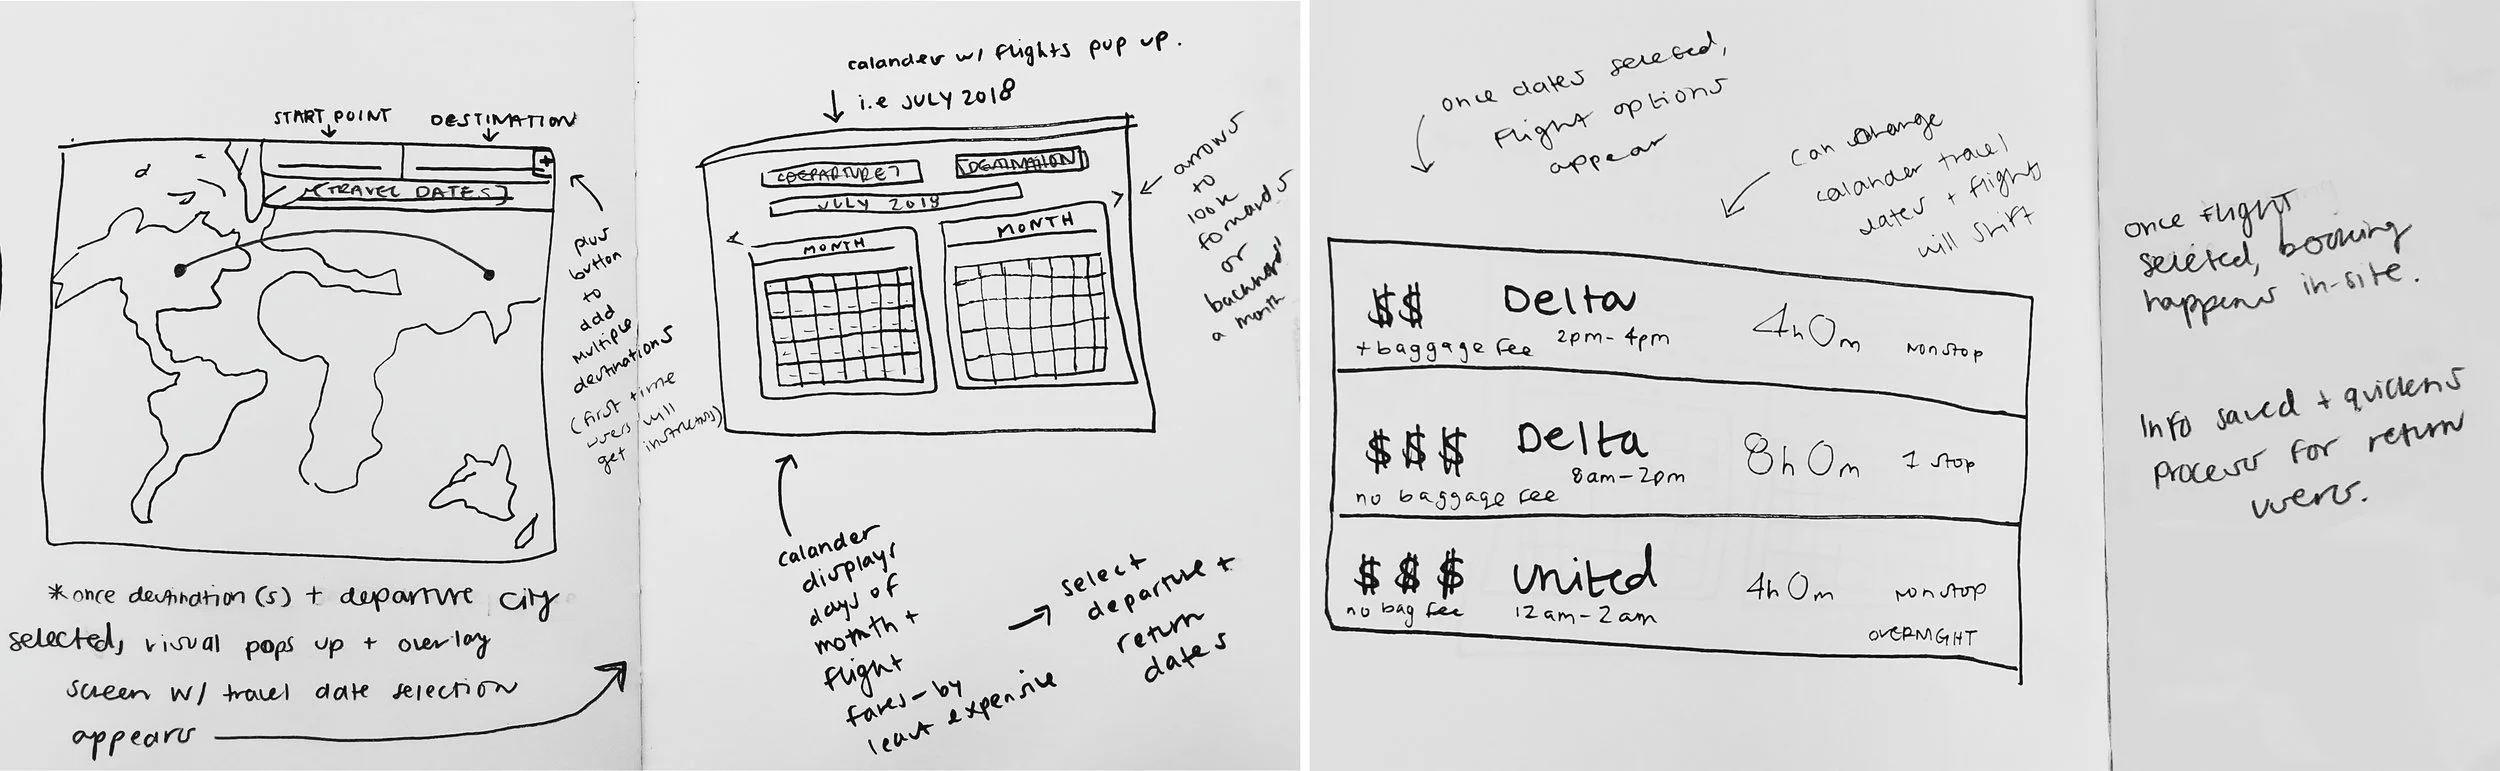 START POINT
DESTINATION
+
[TRAVEL DATES]
plus
button
to
add
multiple
destinations
(first time
users will
get instructions)
*once destination(s) + departure city
selected, visual pops up + overlay
screen w/ travel date selection
appears
calander w/ flights pup up.
i.e JULY 2018
[DEPARTURE]
[DESTINATION]
JULY 2018
<
>
MONTH
MONTH
arrows
to
look
forward
or
backward
a month
calander
displays
days of
month +
flight
fares - by
least expensive
select
departure +
return
dates
once dates selected,
flight options
appear
can change
calander travel
dates + flights
will shift
$$ Delta 4h 0m nonstop
+ baggage fee 2pm - 4pm
$$$ Delta 8h 0m 1 stop
no baggage fee 8am - 2pm
$$$ united 4h 0m nonstop
no bag fee 12am - 2am
OVERNIGHT
once flight
selected, booking
happens in-site.
Info saved + quickens
process for return
users.